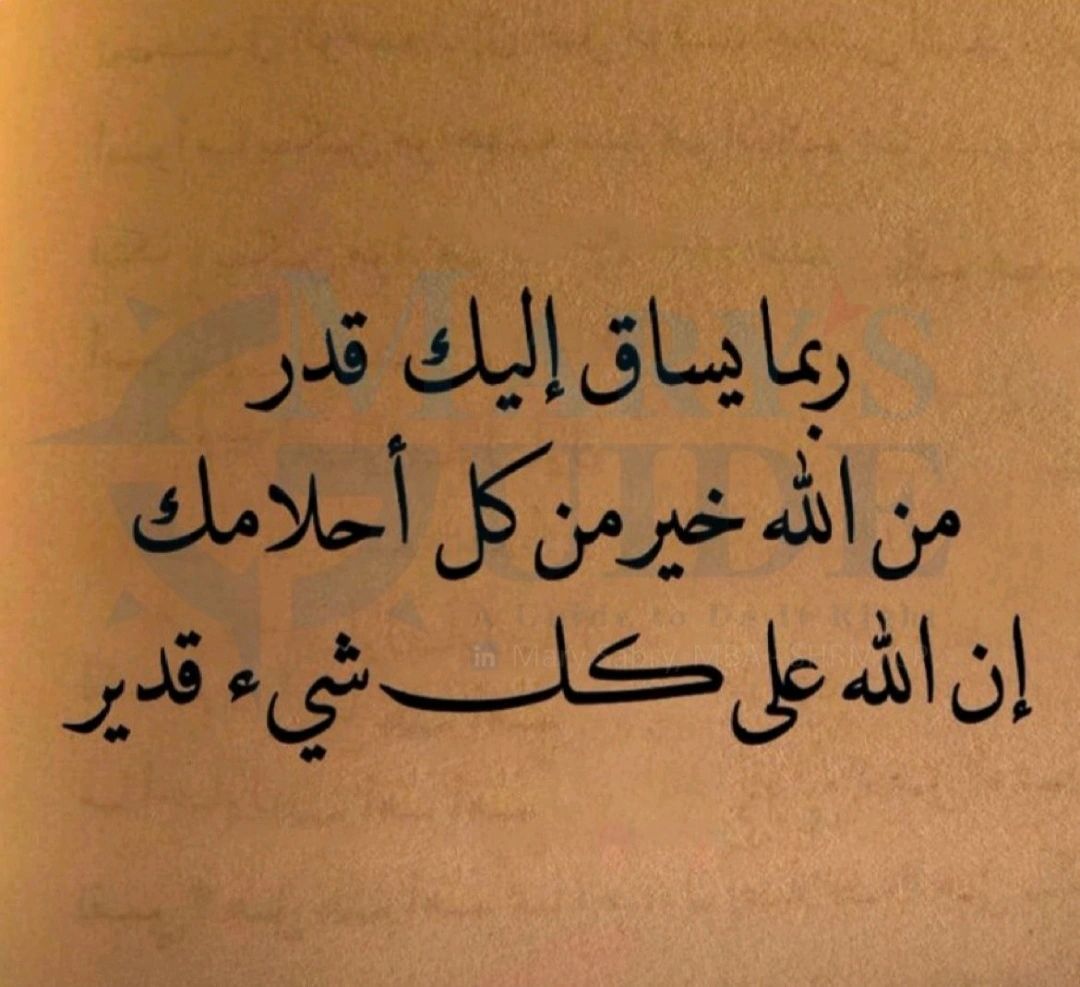 ربما يساق إليك قدر
من الله خير من كل أحلامك
إن الله على كل شيء قدير
MARY'S
GUIDE
A Guide to Do It Right